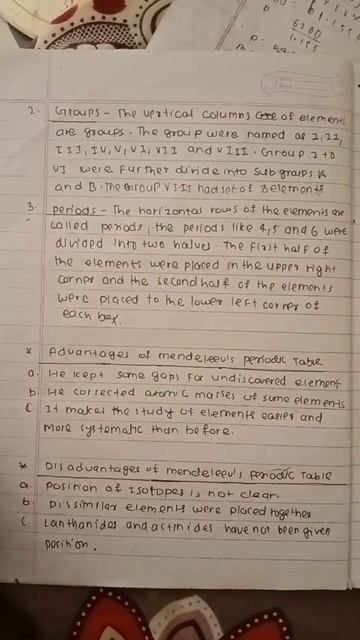 6700
1.155
Date
Page
2. Groups - The vertical columns of elements
are groups. The group were named as I, II,
III, IV, V, VI, VII and VIII. Group I to
VI were further divide into sub graps A
and B. The Group VIII had set of 3 elements
3. periods - The horizontal rows of the elements are
called periods, the periods like 4, 5 and 6 were
divided into two halves. The first half of
the elements were placed in the upper right
corner and the second half of the elements
were placed to the lower left corner of
each box.
* Advantages of mendeleev's periodic Table
a. He kept some gaps for undiscovered element
b. He corrected atomic masses of some elements
c. It makes the study of elements easier and
more systematic than before.
* Disadvantages of mendeleev's periodic Table
a. Position of Isotopes is not clean
b Dissimilar elements were placed together
c. Lanthanides and actinides have not been given
position.